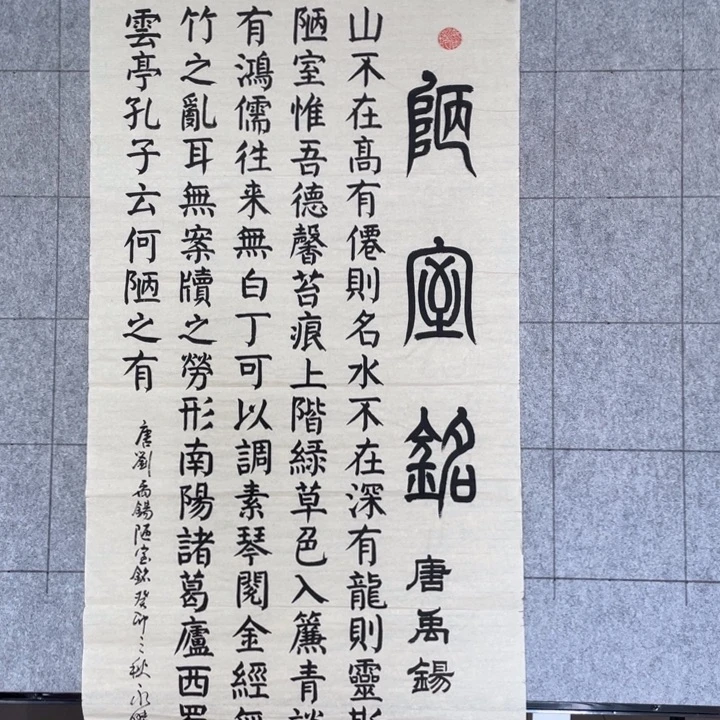 陋室銘 唐禹錫
山不在髙有僊則名水不在深有龍則靈斯
陋室惟吾德馨苔痕上階緑草色入簾青談
有鴻儒往来無白丁可以調素琴閱金經無
竹之亂耳無案牘之勞形南陽諸葛廬西蜀
雲亭孔子云何陋之有
唐劉禹錫陋室銘癸卯之秋永